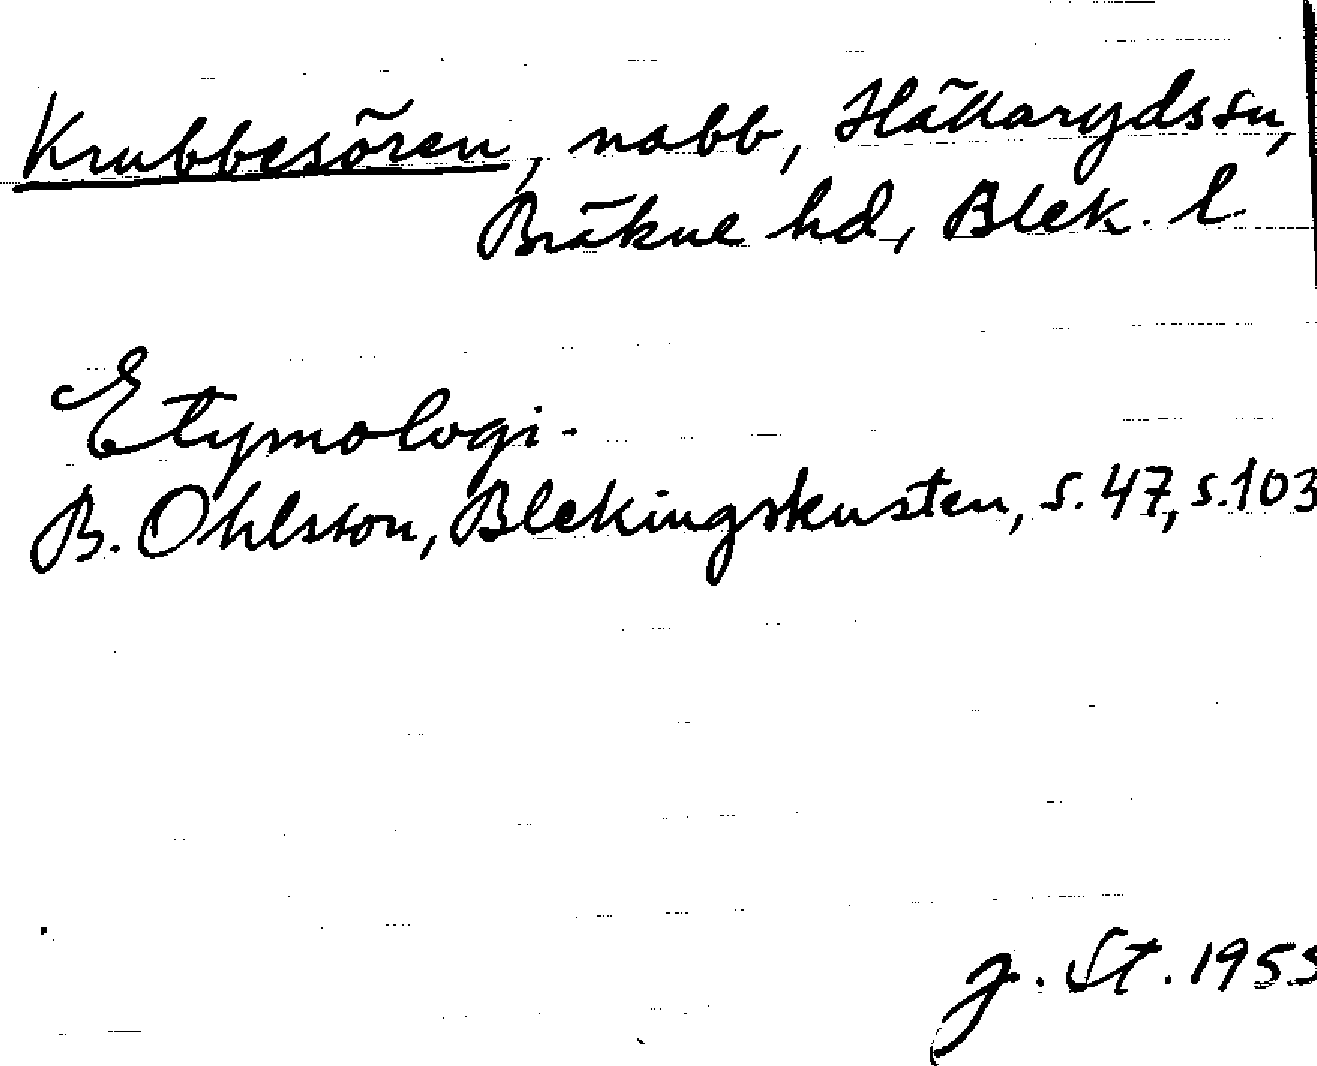 Krubbesören, nabb, Hällarydssn,
Bräkne hd, Blek. l.
Etymologi.
B. Ohlsson, Blekingskusten, s. 47, s. 103
J. St. 1955